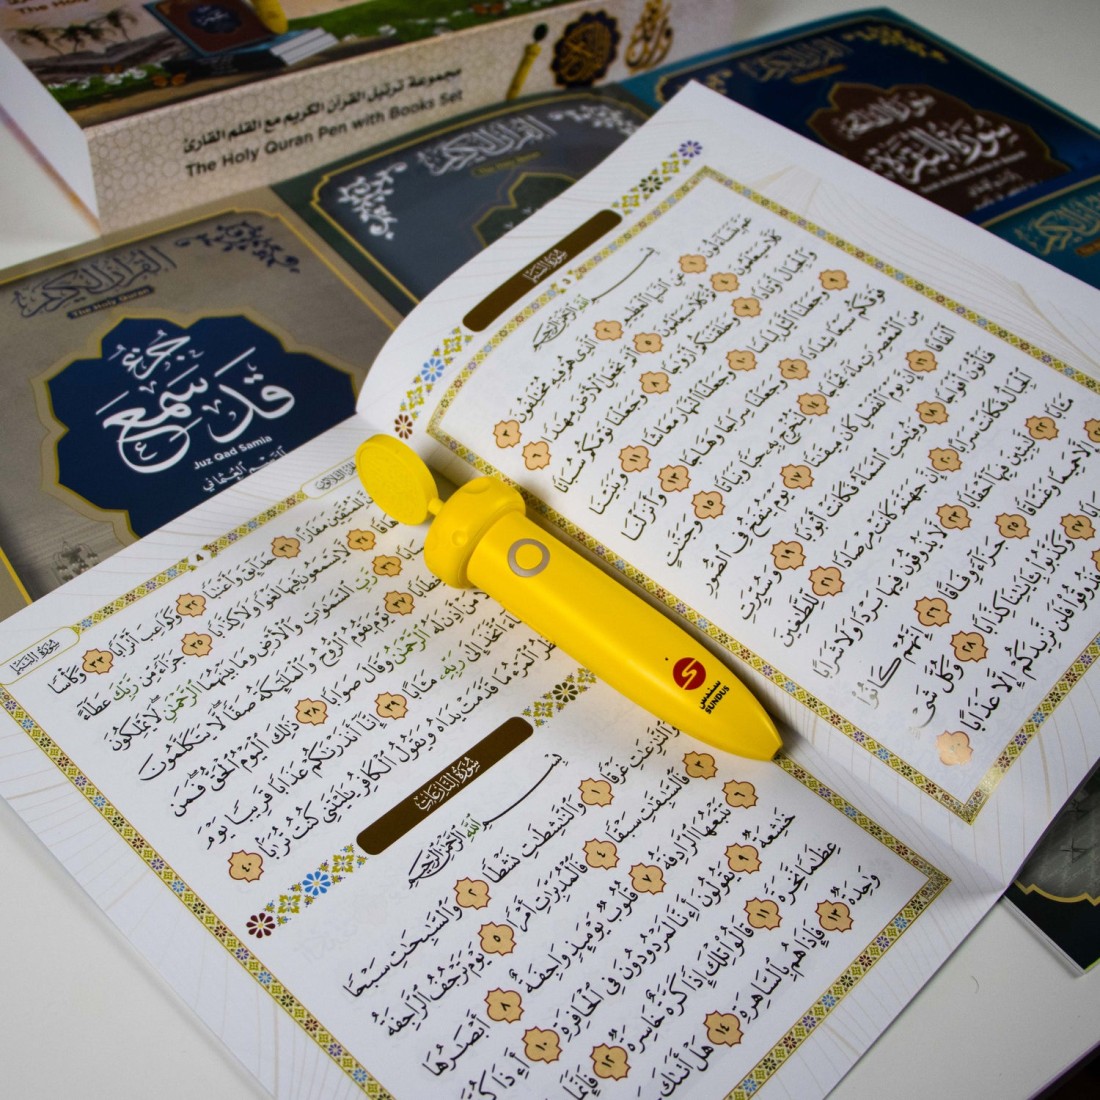 The Holy
مجموعة ترتيل القرآن الكريم مع القلم القارئ
The Holy Quran Pen with Books Set
القرآن الكريم
The Holy Quran
جزء
قد سمع
Juz Qad Samia
القرآن الكريم
القرآن الكريم
سورة البقرة
سُورَةُ النَّبَإِ
٣
بِسْمِ اللَّهِ الرَّحْمَٰنِ الرَّحِيمِ
عَمَّ يَتَسَاءَلُونَ ١ عَنِ النَّبَإِ الْعَظِيمِ ٢ الَّذِي هُمْ فِيهِ مُخْتَلِفُونَ ٣
كَلَّا سَيَعْلَمُونَ ٤ ثُمَّ كَلَّا سَيَعْلَمُونَ ٥ أَلَمْ نَجْعَلِ الْأَرْضَ مِهَادًا ٦
وَالْجِبَالَ أَوْتَادًا ٧ وَخَلَقْنَاكُمْ أَزْوَاجًا ٨ وَجَعَلْنَا نَوْمَكُمْ سُبَاتًا
٩ وَجَعَلْنَا اللَّيْلَ لِبَاسًا ١٠ وَجَعَلْنَا النَّهَارَ مَعَاشًا ١١ وَبَنَيْنَا
فَوْقَكُمْ سَبْعًا شِدَادًا ١٢ وَجَعَلْنَا سِرَاجًا وَهَّاجًا ١٣ وَأَنْزَلْنَا
مِنَ الْمُعْصِرَاتِ مَاءً ثَجَّاجًا ١٤ لِنُخْرِجَ بِهِ حَبًّا وَنَبَاتًا ١٥ وَجَنَّاتٍ
أَلْفَافًا ١٦ إِنَّ يَوْمَ الْفَصْلِ كَانَ مِيقَاتًا ١٧ يَوْمَ يُنْفَخُ فِي الصُّورِ
فَتَأْتُونَ أَفْوَاجًا ١٨ وَفُتِحَتِ السَّمَاءُ فَكَانَتْ أَبْوَابًا ١٩ وَسُيِّرَتِ
الْجِبَالُ فَكَانَتْ سَرَابًا ٢٠ إِنَّ جَهَنَّمَ كَانَتْ مِرْصَادًا ٢١ لِلطَّاغِينَ
مَآبًا ٢٢ لَابِثِينَ فِيهَا أَحْقَابًا ٢٣ لَا يَذُوقُونَ فِيهَا بَرْدًا وَلَا شَرَابًا
٢٤ إِلَّا حَمِيمًا وَغَسَّاقًا ٢٥ جَزَاءً وِفَاقًا ٢٦ إِنَّهُمْ كَانُوا
٢٧ وَكَذَّبُوا بِآيَاتِنَا كِذَّابًا ٢٨ وَكُلَّ شَيْءٍ
فَذُوقُوا فَلَنْ نَزِيدَكُمْ إِلَّا عَذَابًا ٣٠
سُورَةُ النَّبَإِ
٤
لِلْمُتَّقِينَ مَفَازًا ٣١ حَدَائِقَ وَأَعْنَابًا ٣٢ وَكَوَاعِبَ أَتْرَابًا ٣٣ وَكَأْسًا
٣٤ لَا يَسْمَعُونَ فِيهَا لَغْوًا وَلَا كِذَّابًا ٣٥ جَزَاءً مِنْ رَبِّكَ عَطَاءً
٣٦ رَبِّ السَّمَاوَاتِ وَالْأَرْضِ وَمَا بَيْنَهُمَا الرَّحْمَٰنِ لَا يَمْلِكُونَ
٣٧ يَوْمَ يَقُومُ الرُّوحُ وَالْمَلَائِكَةُ صَفًّا لَا يَتَكَلَّمُونَ
مَنْ أَذِنَ لَهُ الرَّحْمَٰنُ وَقَالَ صَوَابًا ٣٨ ذَٰلِكَ الْيَوْمُ الْحَقُّ فَمَنْ
اتَّخَذَ إِلَىٰ رَبِّهِ مَآبًا ٣٩ إِنَّا أَنْذَرْنَاكُمْ عَذَابًا قَرِيبًا يَوْمَ
الْمَرْءُ مَا قَدَّمَتْ يَدَاهُ وَيَقُولُ الْكَافِرُ يَا لَيْتَنِي كُنْتُ تُرَابًا ٤٠
سُورَةُ النَّازِعَاتِ
بِسْمِ اللَّهِ الرَّحْمَٰنِ الرَّحِيمِ
وَالنَّازِعَاتِ غَرْقًا ١ وَالنَّاشِطَاتِ نَشْطًا ٢ وَالسَّابِحَاتِ سَبْحًا
٣ فَالسَّابِقَاتِ سَبْقًا ٤ فَالْمُدَبِّرَاتِ أَمْرًا ٥ يَوْمَ تَرْجُفُ الرَّاجِفَةُ
٦ تَتْبَعُهَا الرَّادِفَةُ ٧ قُلُوبٌ يَوْمَئِذٍ وَاجِفَةٌ ٨ أَبْصَارُهَا
خَاشِعَةٌ ٩ يَقُولُونَ أَإِنَّا لَمَرْدُودُونَ فِي الْحَافِرَةِ ١٠ أَإِذَا كُنَّا
عِظَامًا نَخِرَةً ١١ قَالُوا تِلْكَ إِذًا كَرَّةٌ خَاسِرَةٌ ١٢ فَإِنَّمَا
وَاحِدَةٌ ١٣ فَإِذَا هُمْ بِالسَّاهِرَةِ ١٤ هَلْ أَتَاكَ
سندس
SUNDUS